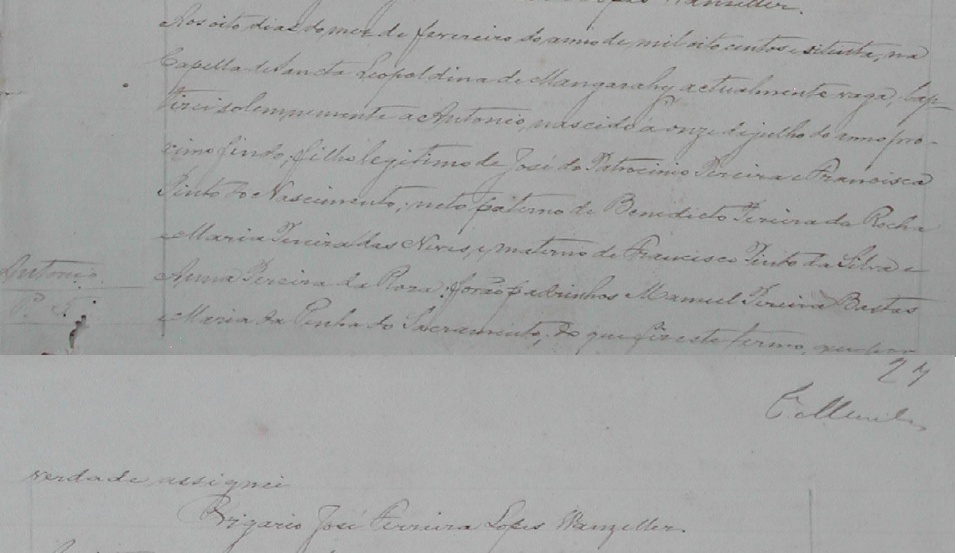 Lopes Wanzeller.
Aos oito dias do mez de fevereiro do anno de mil oito centos e setenta, na
Capella de Sancta Leopoldina de Mangarahy actualmente vaga, bap-
tizei solempnemente a Antonio, nascido a onze de julho do anno pro-
ximo findo, filho legitimo de José do Patrocinio Pereira e Francisca
Pinto do Nascimento, neto paterno de Benedicto Pereira da Rocha
e Maria Pereira das Neves, e materno de Francisco Pinto da Silva e
Antonio
Anna Pereira da Roza: forão padrinhos Manuel Pereira Bastos
P.
e Maria da Penha do Sacramento, do que fiz este termo, que por
27
verdade assignei
O Vigario José Ferreira Lopes Wanzeller.